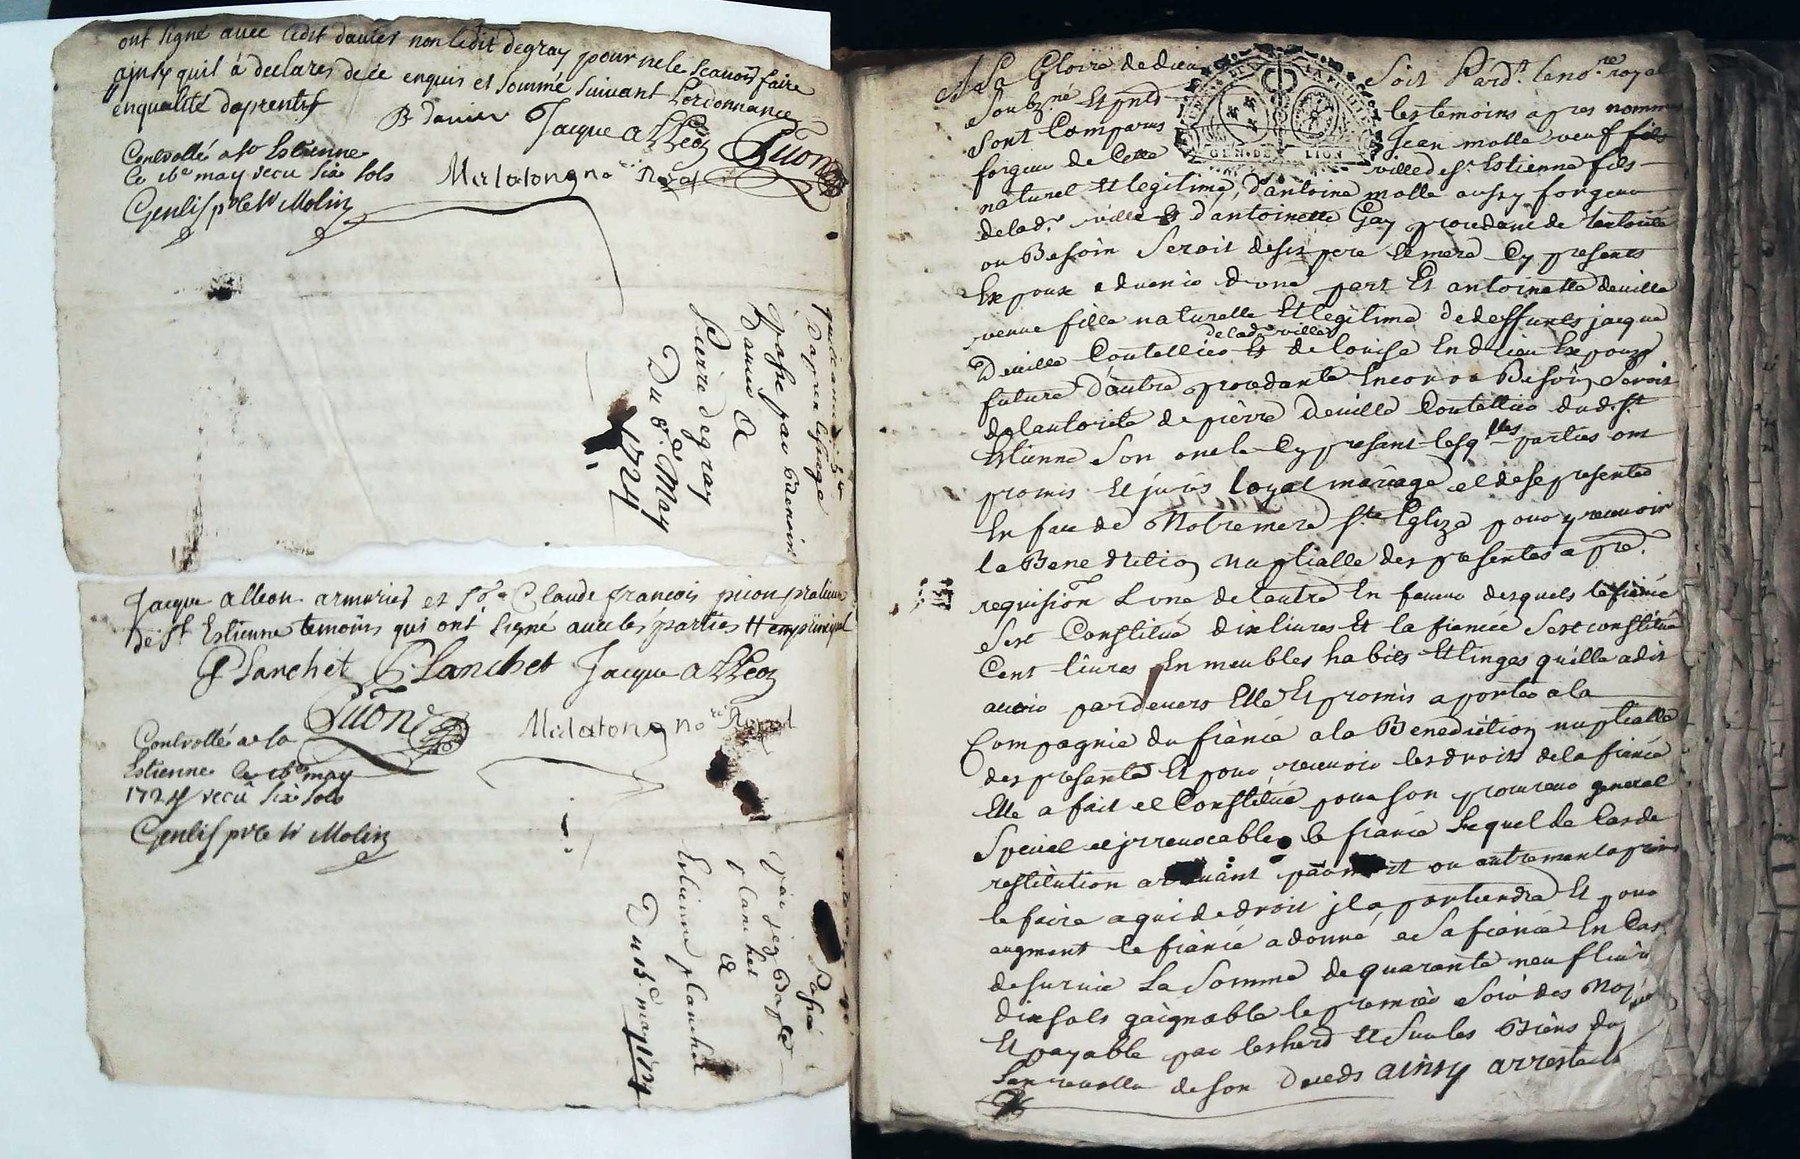 ont signé avec ledit danier non ledit degray pour ne le scavoir faire
ainsy quil à declaré de ce enquis et sommé suivant Lordonnance
enqualité daprentif
B danier Jacque alleon Puon
Controllé a st Estienne
Le 16e may recu six sols
Genlis pr le sr Molin
Malaton gno re Royal
quitance
Daprentissage
passé par benoist
Danier A
Pierre degray
Du 8e May
1724
Jacque alleon armurier et Sr Claude francois praticien
de st Estienne temoins qui ont signé avec les parties
Planchet Planchet Jacque alleon
Puon
Malaton gno re Royal
Controllé a st
Estienne le 16e may
1724 recu six sols
Genlis pr le sr Molin
Passé
par
planchet
A
Estienne planchet
Du 15e may 1724
A La Gloire de dieu Soit Pardt le nore royal
Soubzné Et pnts les temoins apres nommes
Sont Comparus Jean malle veuf fils
forgeur de Cette ville de st Estienne fils
GEN·DE LION
naturel Et legitime d'antoine malle aussy forgeur
de lad. ville Et d'antoinette Gay procedant de lautorité
ou Besoin Seroit de ses pere et mere Cy presents
Expoux advenir d'une part Et antoinette deville
veuve fille naturelle Et legitime de deffunts jacque
de lade ville
Deville Coutellier Et de louise Endrieu Expouze
future d'autre procedante Encor ou Besoin Seroit
de lautorité de pierre Deville Coutellier dud. st
Estienne Son oncle Cy present lesqlles parties ont
promis Et jurés loyal mariage et de se presenter
En face de Notre mere ste Eglize pour y recevoir
la Benediction nuptialle des presentes a pre.
requision Lune de lautre En faveur desquels le fiancé
Sest Constitué dix livres Et la fiancée Sest constitué
Cent livres En meubles habits Et linges quille a dit
avoir pardevers Elle Et promis a porter a la
Compagnie du fiancé a la Benediction nuptialle
des presentes Et pour recevoir les droits de la fiancée
Elle a fait et Constitué pour son procureur general
Special et jrrevocable le fiancé Lequel de Cas de
restitution arrivant par mort ou autrement a promis
le faire a qui de droit jl apartiendra Et pour
augment le fiancé a donné a Sa fiancée En Cas
de survie La Somme de quarante neuf livres
dix sols gaignable le premier
Et payable par les herd Et Sur les Biens du
de Son Deceds ainsy arresté